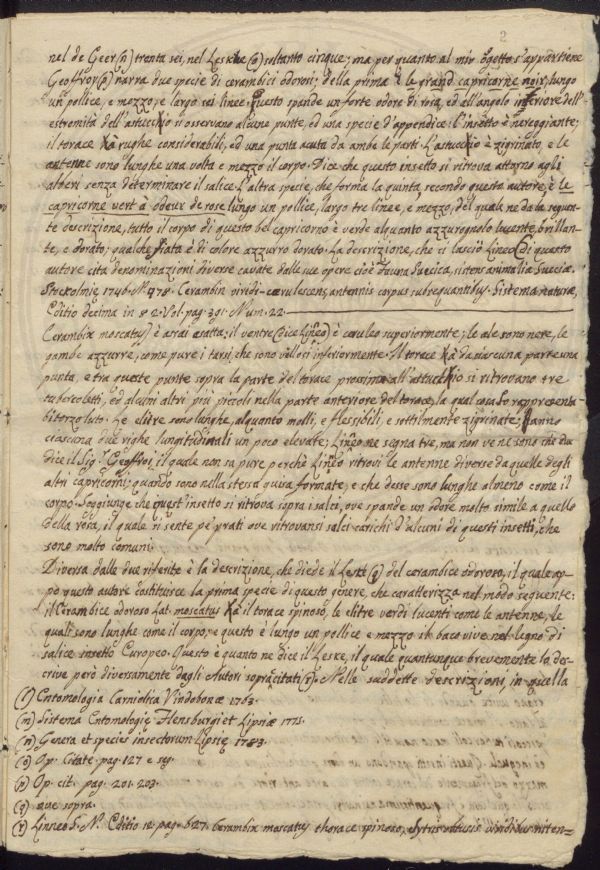 2
nel de Geer (n) trenta sei, nel Leske (o) soltanto cinque; ma per quanto al mio ogetto s'appartiene
Geoffroy (p) narra due specie di cerambici odorosi; della prima è le grand capricorne noir, lungo
un pollice, e mezzo, e largo sei linee. Questo spande un forte odore di rosa, ed all'angolo inferiore dell'
estromità dell'astucchio si osservano alcune punte, ed una specie d'appendice: l'insetto è nereggiante;
il torace hà rughe considerabili, ed una punta acuta da ambe le parti. L'astucchio è zigrinato, e le
antenne sono lunghe una volta e mezzo il corpo. Dice che questo insetto si ritrova attorno agli
alberi senza determinare il salice. L'altra specie, che forma la quinta secondo questo autore, è le
capricorne vert à odeur de rose lungo un pollice, largo tre linee, e mezzo, del quale ne da la seguen-
te descrizione, tutto il corpo di questo bel capricorno è verde alquanto azzurognolo lucente, brillan-
te, e dorato; qualche fiata è di colore azzurro dorato. La descrizione, che ci lasciò Lineo (di questo
autore cita denominazioni diverse cavate dalle sue opere cioè fauna Suecica, sistens animalia Sueciæ.
Stockolmiæ 1746. N. 478. Cerambix viridi-cærulescens, antennis corpus subæquantibus. Sistema naturæ,
Editio decima in 8° 2. Vol. pag. 391. Num. 22.
Cerambix moscatus) è assai esatta: il ventre (dice Lineo) è ceruleo superiormente; le ale sono nere, le
gambe azzurre, come pure i tarsi, che sono vellosi inferiormente. Il torace hà da ciascuna parte una
punta, e tra queste punte sopra la parte del torace prossima all'astucchio si ritrovano tre
tubercoletti, ed alcuni altri più piccoli nella parte anteriore del torace, la qual cosa lo rappresenta
bitorzoluto. Le elitre sono lunghe, alquanto molli, e flessibili, e sottilmente zigrinate; hanno
ciascuna due righe lungitudinali un poco elevate; Lineo ne segna tre, ma non ve ne sono che due
dice il Sig.r Geoffroi, il quale non sa pure perchè Lineo ritrovi le antenne diverse da quelle degli
altri capricorni; quando sono nella stessa guisa formate, e che desse sono lunghe almeno come il
corpo. Soggiunge che quest'insetto si ritrova sopra i salci, ove spande un odore molto simile a quello
della rosa, il quale si sente pe' prati ove ritrovansi salci carichi d'alcuni di questi insetti, che
sono molto comuni.
Diversa dalle due riferite è la descrizione, che diede il Leske (q) del cerambice odoroso, il quale ap-
po questo autore costituisce la prima specie di questo genere, che caratterizza nel modo seguente:
il Cerambice odoroso Lat. moscatus hà il torace spinoso, le elitre verdi lucenti come le antenne, le
quali sono lunghe come il corpo, e questo è lungo un pollice e mezzo. Il baco vive nel legno di
salice insetto Europeo. Questo è quanto ne dice il Leske, il quale quantunque brevemente lo des-
crive però diversamente dagli Autori sopracitati (r). Nelle suddette descrizioni, in quella
(l) Entomologia Carniolica Vindobonæ 1763.
(m) Sistema Entomologiæ Flensburgi et Lipsiæ 1775.
(n) Genera et species insectorum Lipsiæ 1783.
(o) Op. Citate. pag. 127 e seg.
(p) Op. cit. pag. 201. 203.
(q) sopra.
(r) Linneo S. N. Editio 12 pag. 627. Cerambix moscatus thorace spinoso, elytris obtusis viridibus niten=